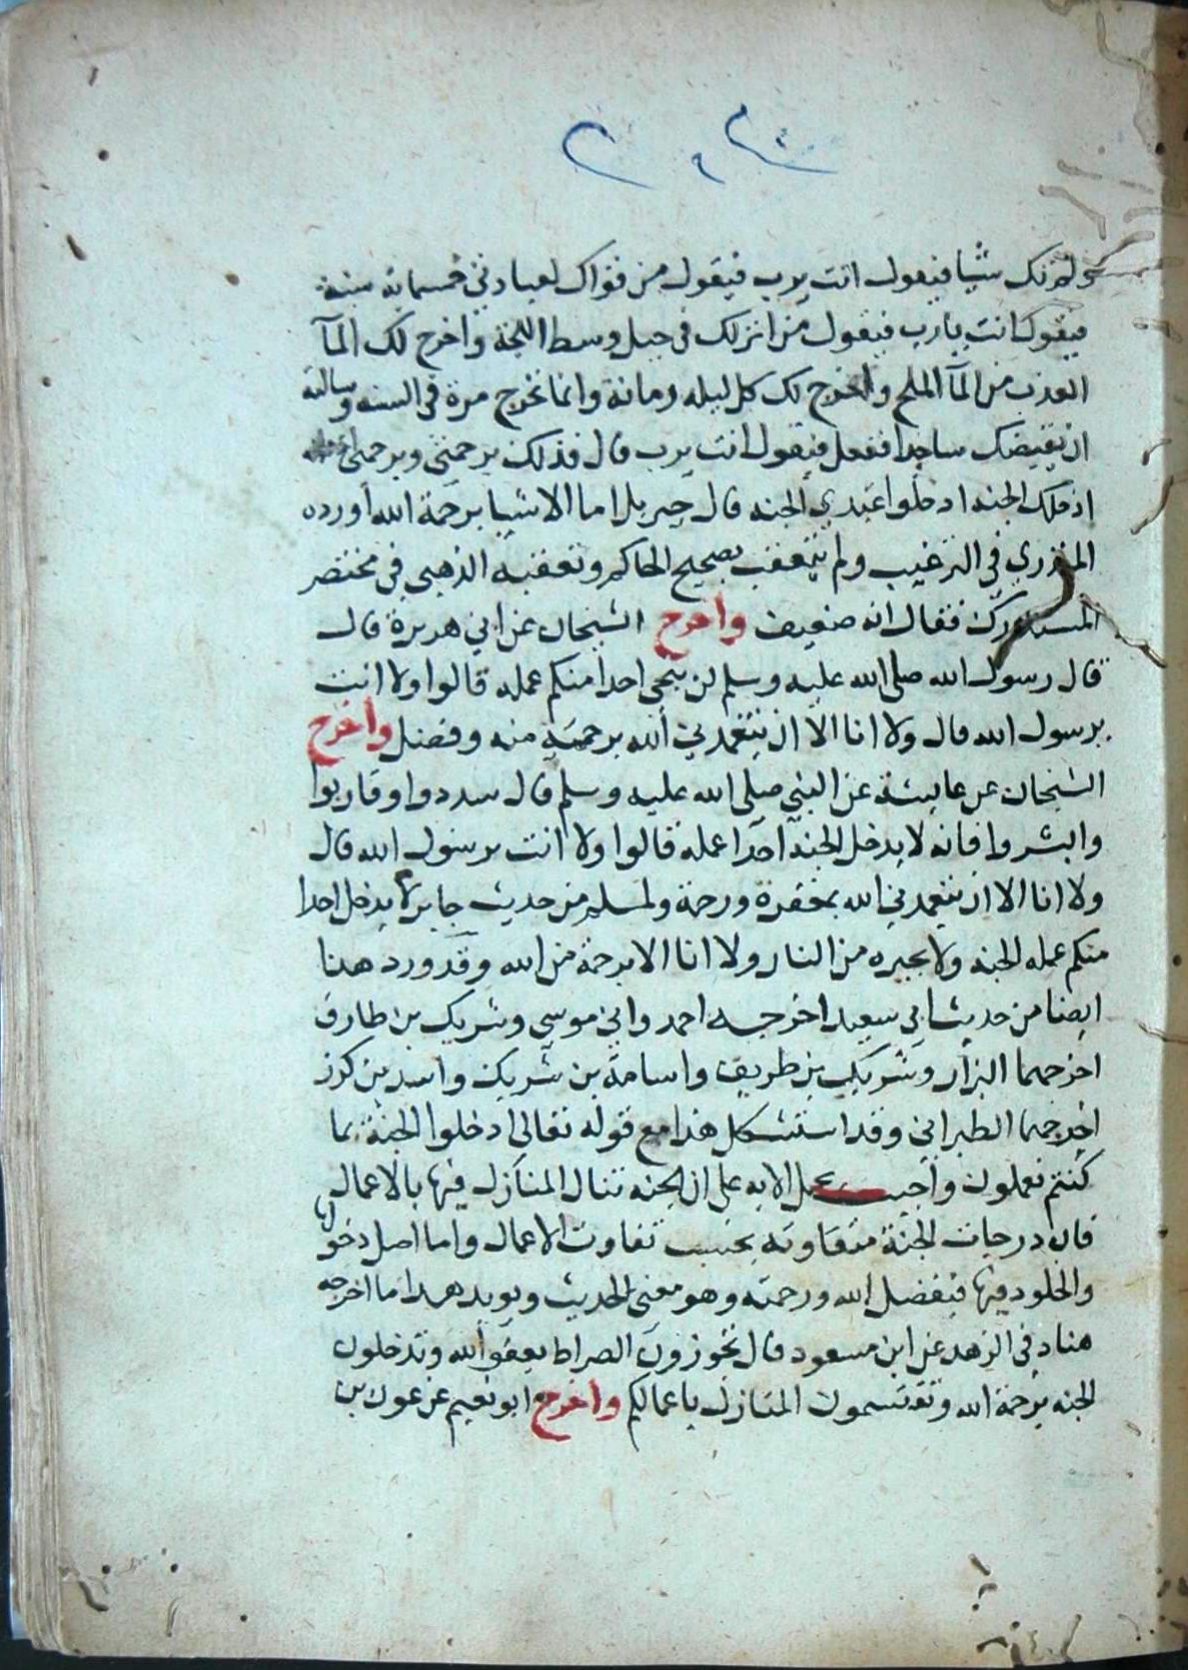 ولم تك شيا فيقول انت يرب فيقول من قواك لعبادتى خمسماية سنة
فيقول انت يارب فيقول من انزلك فى جبل وسط اللجة واخرج لك المآ
العذب من المآ المالح واخرج لك كل ليله رمانة وانما تخرج مرة فى السنه وسالته
ان يقبضك ساجدا ففعل فيقول انت يرب قال فذلك برحمتى وبرحمتى
ادخلك الجنه ادخلوا عبدي الجنه قال جبريل اما الاشيا برحمة الله اورده
المنذري في الترغيب ولم يتعقب بصحيح الحاكم وتعقبه الذهبى فى مختصر
المستدرك فقال انه ضعيف واخرج الشيخان عن ابي هريرة قال
قال رسول الله صلى الله عليه وسلم لن ينجى احدا منكم عمله قالوا ولا انت
يرسول الله قال ولا انا الا ان يتغمدني الله برحمة منه وفضل واخرج
الشيخان عن عايشة عن النبي صلى الله عليه وسلم قال سددوا وقاربوا
وابشروا فانه لا يدخل الجنه احدا عمله قالوا ولا انت يرسول الله قال
ولا انا الا ان يتغمدني الله بمغفرة ورحمة ولمسلم من حديث جابر لا يدخل احدا
منكم عمله الجنه ولا يجيره من النار ولا انا الا برحمة من الله وقد ورد هدا
ايضا من حديث ابي سعيد اخرجه احمد وابي موسى وشريك بن طارق
اخرجهما البزار وشريك بن طريف واسامة بن شريك واسد بن كرز
اخرجهما الطبراني وقد استشكل هذا مع قوله تعالى ادخلوا الجنة بما
كنتم تعملون واجيب بحمل الايه على ان الجنه تنال المنازل فيها بالاعمال
فان درجات الجنة متفاوته بحسب تفاوت الاعمال واما اصل دخولها
والخلود فيها فبفضل الله ورحمته وهو معنى الحديث ويويد هدا ما اخرجه
هناد فى الزهد عن ابن مسعود قال تجوزون الصراط بعفو الله وتدخلون
الجنه برحمة الله وتقتسمون المنازل باعمالكم واخرج ابو نعيم عن عون بن